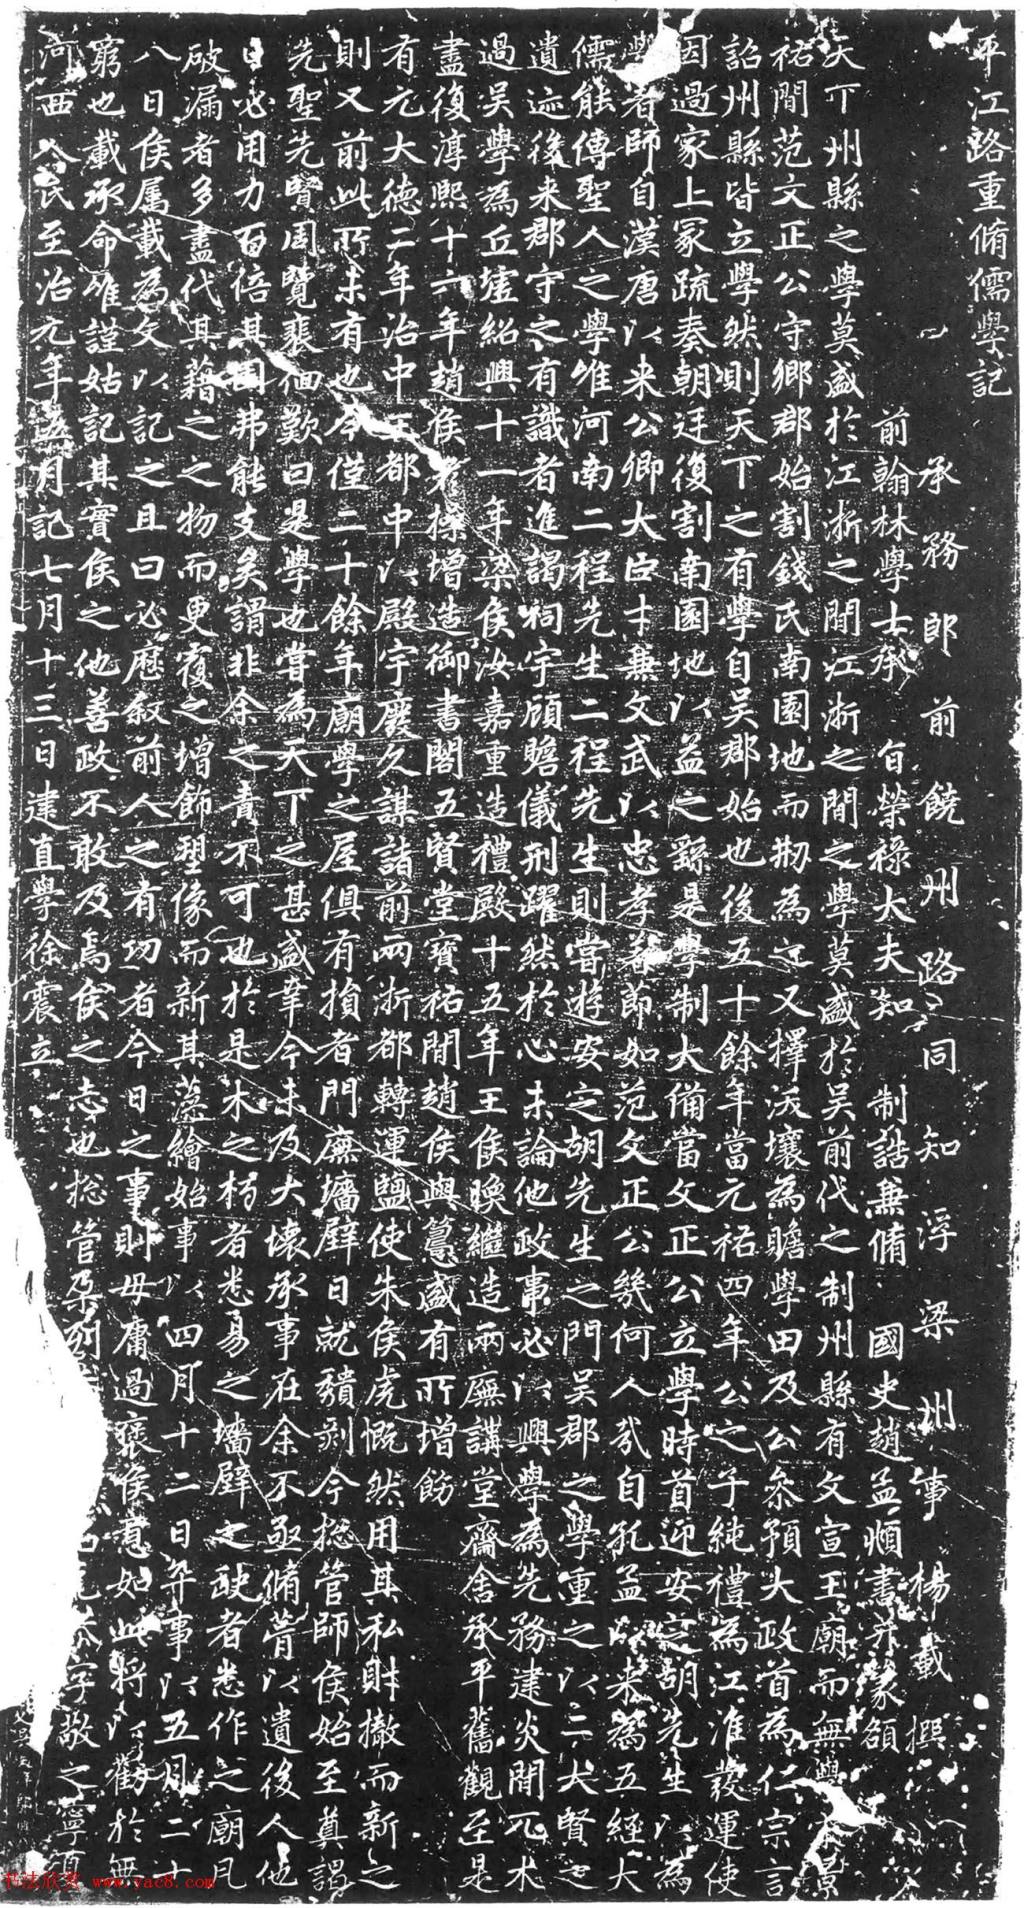 平江路重脩儒學記
承務郎前饒州路同知浮梁州事楊載撰
前翰林學士承旨榮祿大夫知制誥兼脩國史趙孟頫書并篆額
天下州縣之學莫盛於江浙之間江浙之間之學莫盛於吳前代之制州縣有文宣王廟而無學景
祐間范文正公守鄉郡始割錢氏南園地而刱為之又擇沃壤為贍學田及公叅預大政首為仁宗言
詔州縣皆立學然則天下之有學自吳郡始也後五十餘年當元祐四年公之子純禮為江淮發運使
因過家上冢疏奏朝廷復割南園地以益之繇是學制大備當文正公立學時首迎安定胡先生以為
學者師自漢唐以来公卿大臣才兼文武以忠孝著節如范文正公幾何人哉自孔孟以来為五經大
儒能傳聖人之學唯河南二程先生二程先生則當遊安定胡先生之門吳郡之學重之以二大賢之
遺迹後来郡守之有識者進謁祠宇顧瞻儀刑躍然於心未論他政事必以興學為先務建炎間兀朮
過吳學為丘墟紹興十一年梁侯汝嘉重造禮殿十五年王侯㬇繼造兩廡講堂齋舍承平舊觀至是
盡復淳熙十六年趙侯彥操增造御書閣五賢堂寳祐間趙侯與𥲅盛有所增飭
有元大德二年治中王都中以殿宇廢久謀諸前兩浙都轉運鹽使朱侯虎慨然用其私財撤而新之
則又前此所未有也今僅二十餘年廟學之屋俱有損者門廡墻壁日就隳剥今捴管師侯始至奠謁
先聖先賢周覽裴佪歎曰是學也嘗為天下之甚盛幸今未及大壞承事在余不亟脩葺以遺後人他
日必用力百倍其固弗能支矣謂非余之責不可也於是木之朽者悉易之墻壁之㱔者悉作之廟凡
破漏者多盡代其藉之之物而更覆之增飾塑像而新其藻繪始事以四月十二日弈事以五月二十
八日侯属載為文以記之且曰必歷叙前人之有功者今日之事則毋庸過褒侯意如此將以勸於無
窮也載承命唯謹姑記其實侯之他善政不敢及焉侯之志也捴管朶 字敬之寧
河西人氏至治元年五月記七月十三日建直學徐震立
书法欣赏 www.yac8.com